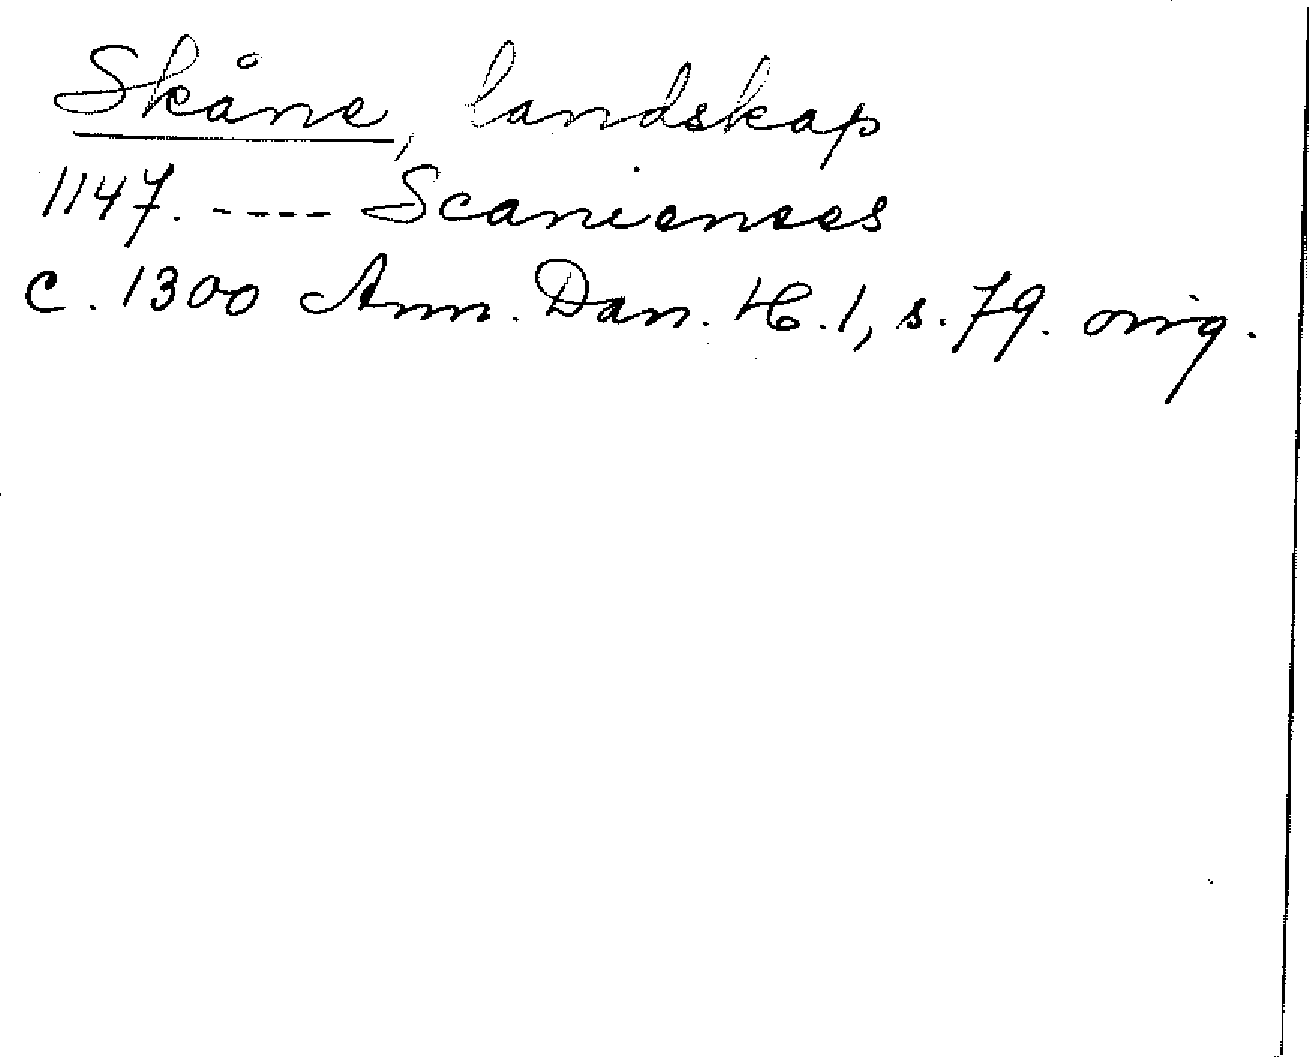 Skåne, landskap
1147. ---- Scanienses
c. 1300 Ann. Dan. H. 1, s. 79. orig.